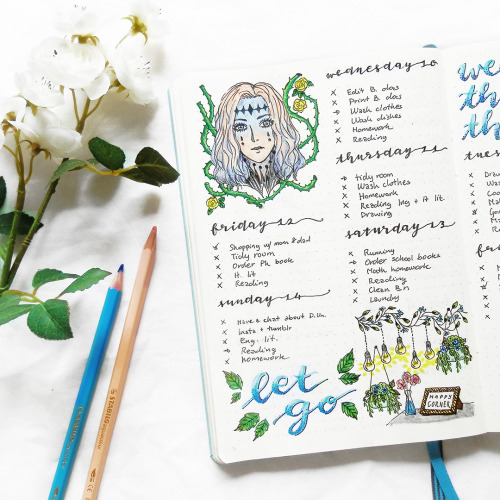 wednesday 10
x Edit B. doss
x Print B. doss
→ Wash clothes
x Wash dishes
x Homework
x Reading
thursday 11
→ tidy room
x Wash clothes
x Homework
x Reading Eng + H lit.
x Drawing
friday 12
Shopping w/ mom & dad
x Tidy room
x Order Ph. book
x H. lit
x Reading
saturday 13
x Running
→ Order school books
x Math homework
x Reading
x Clean B.n
x Laundry
sunday 14
x Have a chat about D.Un.
x Insta + tumblr
x Eng. lit.
→ Reading
x homework
let
go
HAPPY
CORNER
we
th
th
tues
x Draw
x Wa
x Coo
x Mal
x Ma
x R
f
x M